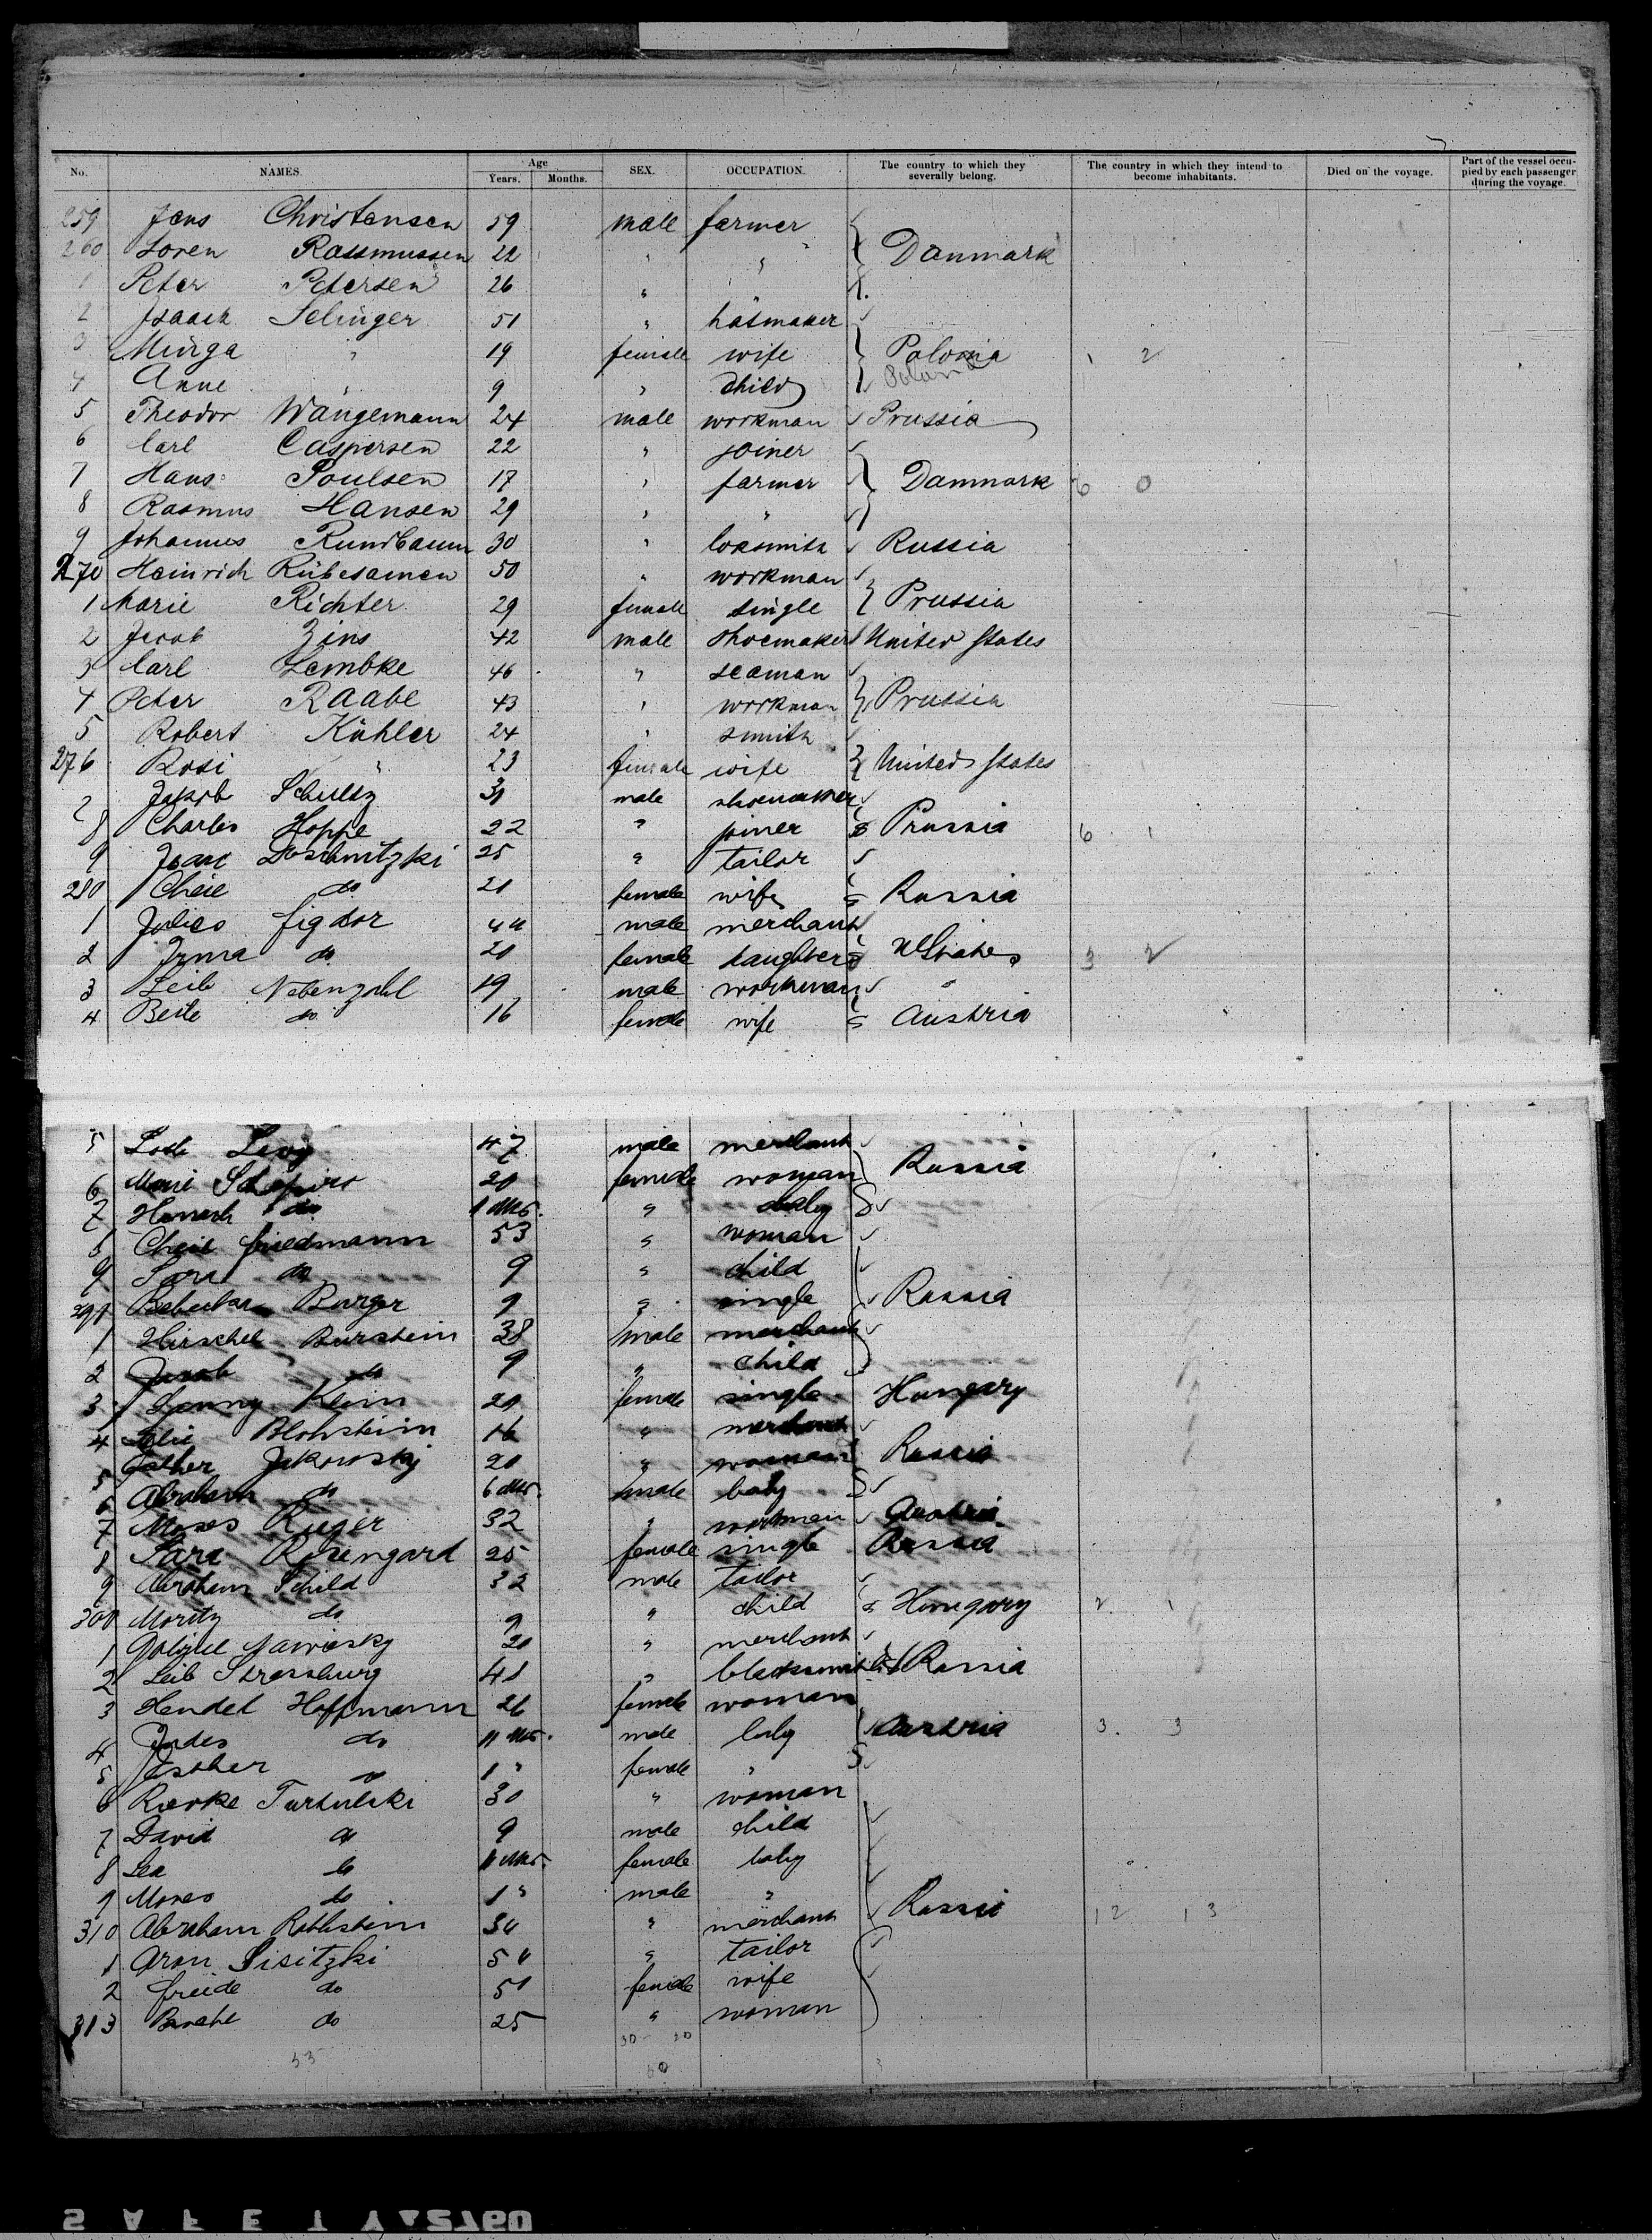 No. NAMES. Age Years. Months. SEX. OCCUPATION. The country to which they severally belong. The country in which they intend to become inhabitants. Died on the voyage. Part of the vessel occupied by each passenger during the voyage.
259 Jens Christensen 59 male farmer
260 Soren Rassmussen 22 " " Danmark
1 Peter Petersen 26 " "
2 Isaack Selinger 51 " hatmaker
3 Minga " 19 female wife Polonia 1 2
4 Anne " 9 " child Poland
5 Theodor Wangemann 24 male workman Prussia
6 Carl Caspersen 22 " joiner
7 Hans Poulsen 17 " farmer Danmark 6 0
8 Rasmus Hansen 29 " "
9 Johannes Rundbaum 30 " loksmith Russia
270 Heinrich Rübesamen 50 " workman
1 Marie Richter 29 female single Prussia
2 Jacob Zins 42 male shoemaker United States
3 Carl Lembke 46 " seaman
4 Peter Raabe 43 " workman Prussia
5 Robert Kühler 24 " smith
276 Rosi " 23 female wife United States
Jakob Schultz 31 male shoemaker
8 Charles Hoppe 22 " joiner Prussia 6 1
9 Isaac 25 " tailor
280 Cheie do 21 female wife Russia
1 Julies Figdor 44 male merchant
2 Irma do 20 female daughter UStates 3 2
3 Leib Nebenzahl 19 male workman
4 Beile do 16 female wife Austria
5 Levy 47 male merchant
6 Marie Schapiro 20 female woman Russia
7 do 11 Mts. " baby
8 Cheie Friedmann 53 " woman
9 Sara do 9 " child
Burger 9 " single Russia
1 Hirschel Burstein 38 male merchant
2 Jacob do 9 " child
3 Klein 20 female single Hungary
4 Blohstein 16 " merchant
5 Esther Jakowsky 20 " woman Russia
6 Abraham do 6 Mts. male baby
7 Moses Rieger 32 " workman Austria
8 Sara Rosengard 25 female single Russia
9 Abraham Schild 32 male tailor
300 Moritz do 9 " child Hungary 2 1
1 Nawiasky 20 " merchant
2 Leib Strassburg 41 " blacksmith Russia
3 Hendel Hoffmann 26 female woman
4 Judes do 11 Mts. male baby Austria 3. 3
5 Esther do 1 " female "
6 Rivke Turkulski 30 " woman
7 David do 9 male child
8 Lea do 11 Mts. female baby
9 Moses do 1 " male "
310 Abraham Rothstein 34 " merchant Russi 12 13
1 Aron Sisitzki 54 " tailor
2 Freide do 51 female wife
313 do 25 " woman
30 20
53 50